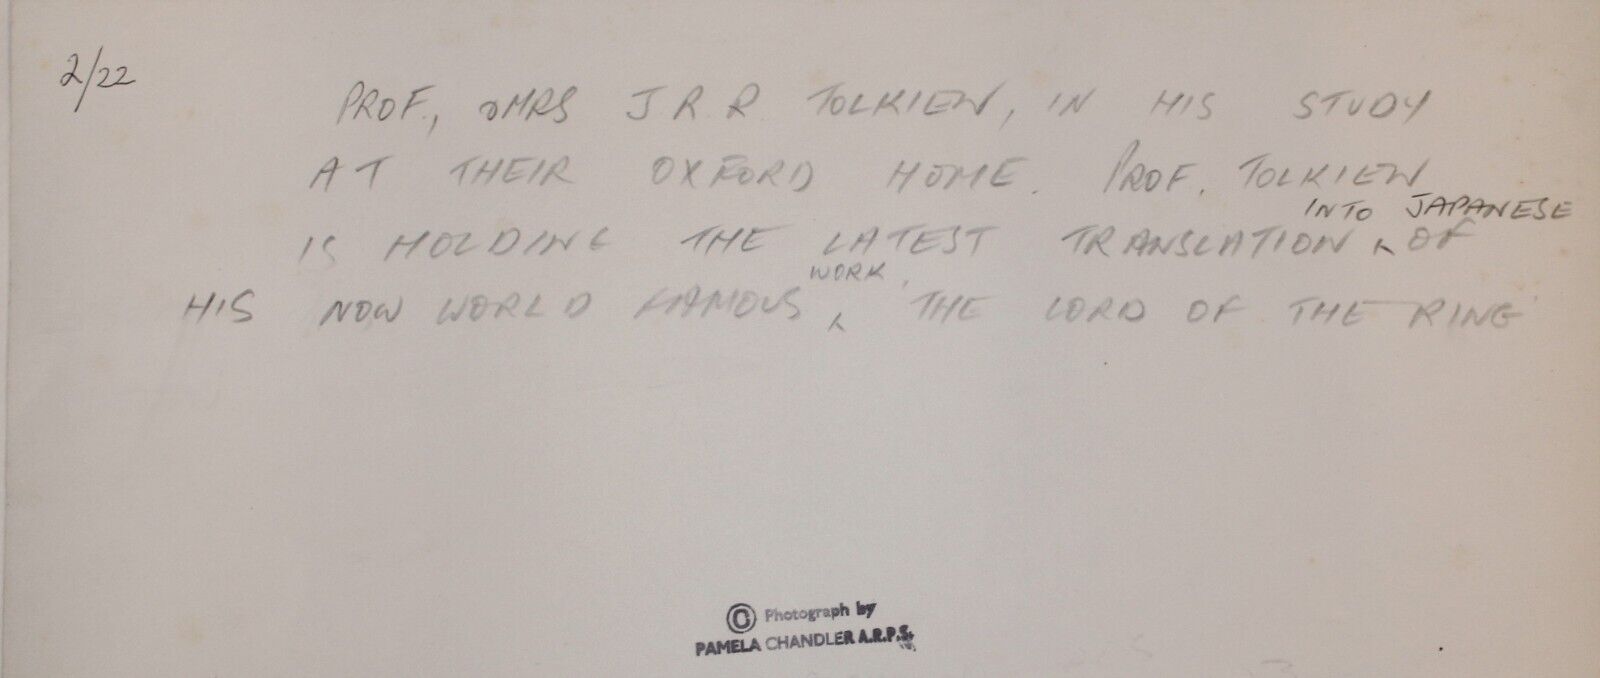 2/22
PROF., & MRS J R. R. TOLKIEN, IN HIS STUDY
AT THEIR OXFORD HOME. PROF. TOLKIEN
INTO JAPANESE
IS HOLDING THE LATEST TRANSLATION ^ OF
WORK,
HIS NOW WORLD FAMOUS ^ THE LORD OF THE RING
© Photograph by
PAMELA CHANDLER A.R.P.S.